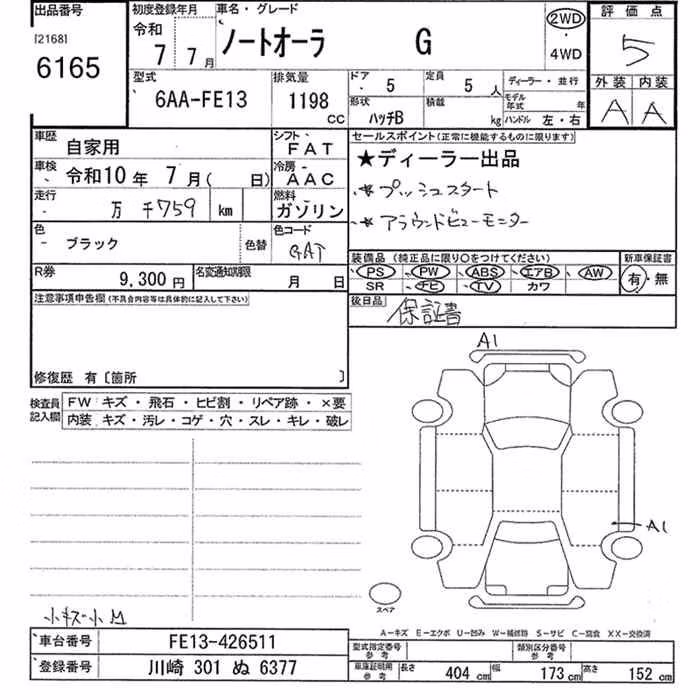 出品番号 初度登録年月 車名・グレード 評価点
[2168] 令和 ノートオーラ G 2WD ・ 4WD 5
6165 7 7月
型式 排気量 ドア 5 定員 5人 ディーラー・並行 外装 内装
6AA-FE13 1198 CC 形状 ハッチB 積載 kg モデル年式 年 A A
ハンドル 左・右
車歴 自家用 シフト FAT セールスポイント(正常に機能するものに限ります)
車検 令和10年 7月( 日) 冷房 AAC ★ディーラー出品
走行 万 千759 km 燃料 ガソリン ★プッシュスタート
色 ブラック 色替 色コード GAT ★アラウンドビューモニター
R券 9,300円 名変通知期限 月 日 装備品 (純正品に限り○をつけてください) 新車保証書
PS PW ABS エアB AW 有・無
SR ナビ TV カワ
注意事項申告欄(不具合内容等は具体的に記入して下さい) 後日品 保証書
修復歴 有〔箇所 〕
検査員記入欄 FW キズ・飛石・ヒビ割・リペア跡・×要
内装 キズ・汚レ・コゲ・穴・スレ・キレ・破レ
A1
A1
スペア
小キズ小
A-キズ E-エクボ U-凹み W-補修跡 S-サビ C-腐食 XX-交換済
車台番号 FE13-426511 型式指定番号 参考 類別区分番号 参考
登録番号 川崎 301 ぬ 6377 車庫証明用 参考 長さ 404 cm 幅 173 cm 高さ 152 cm